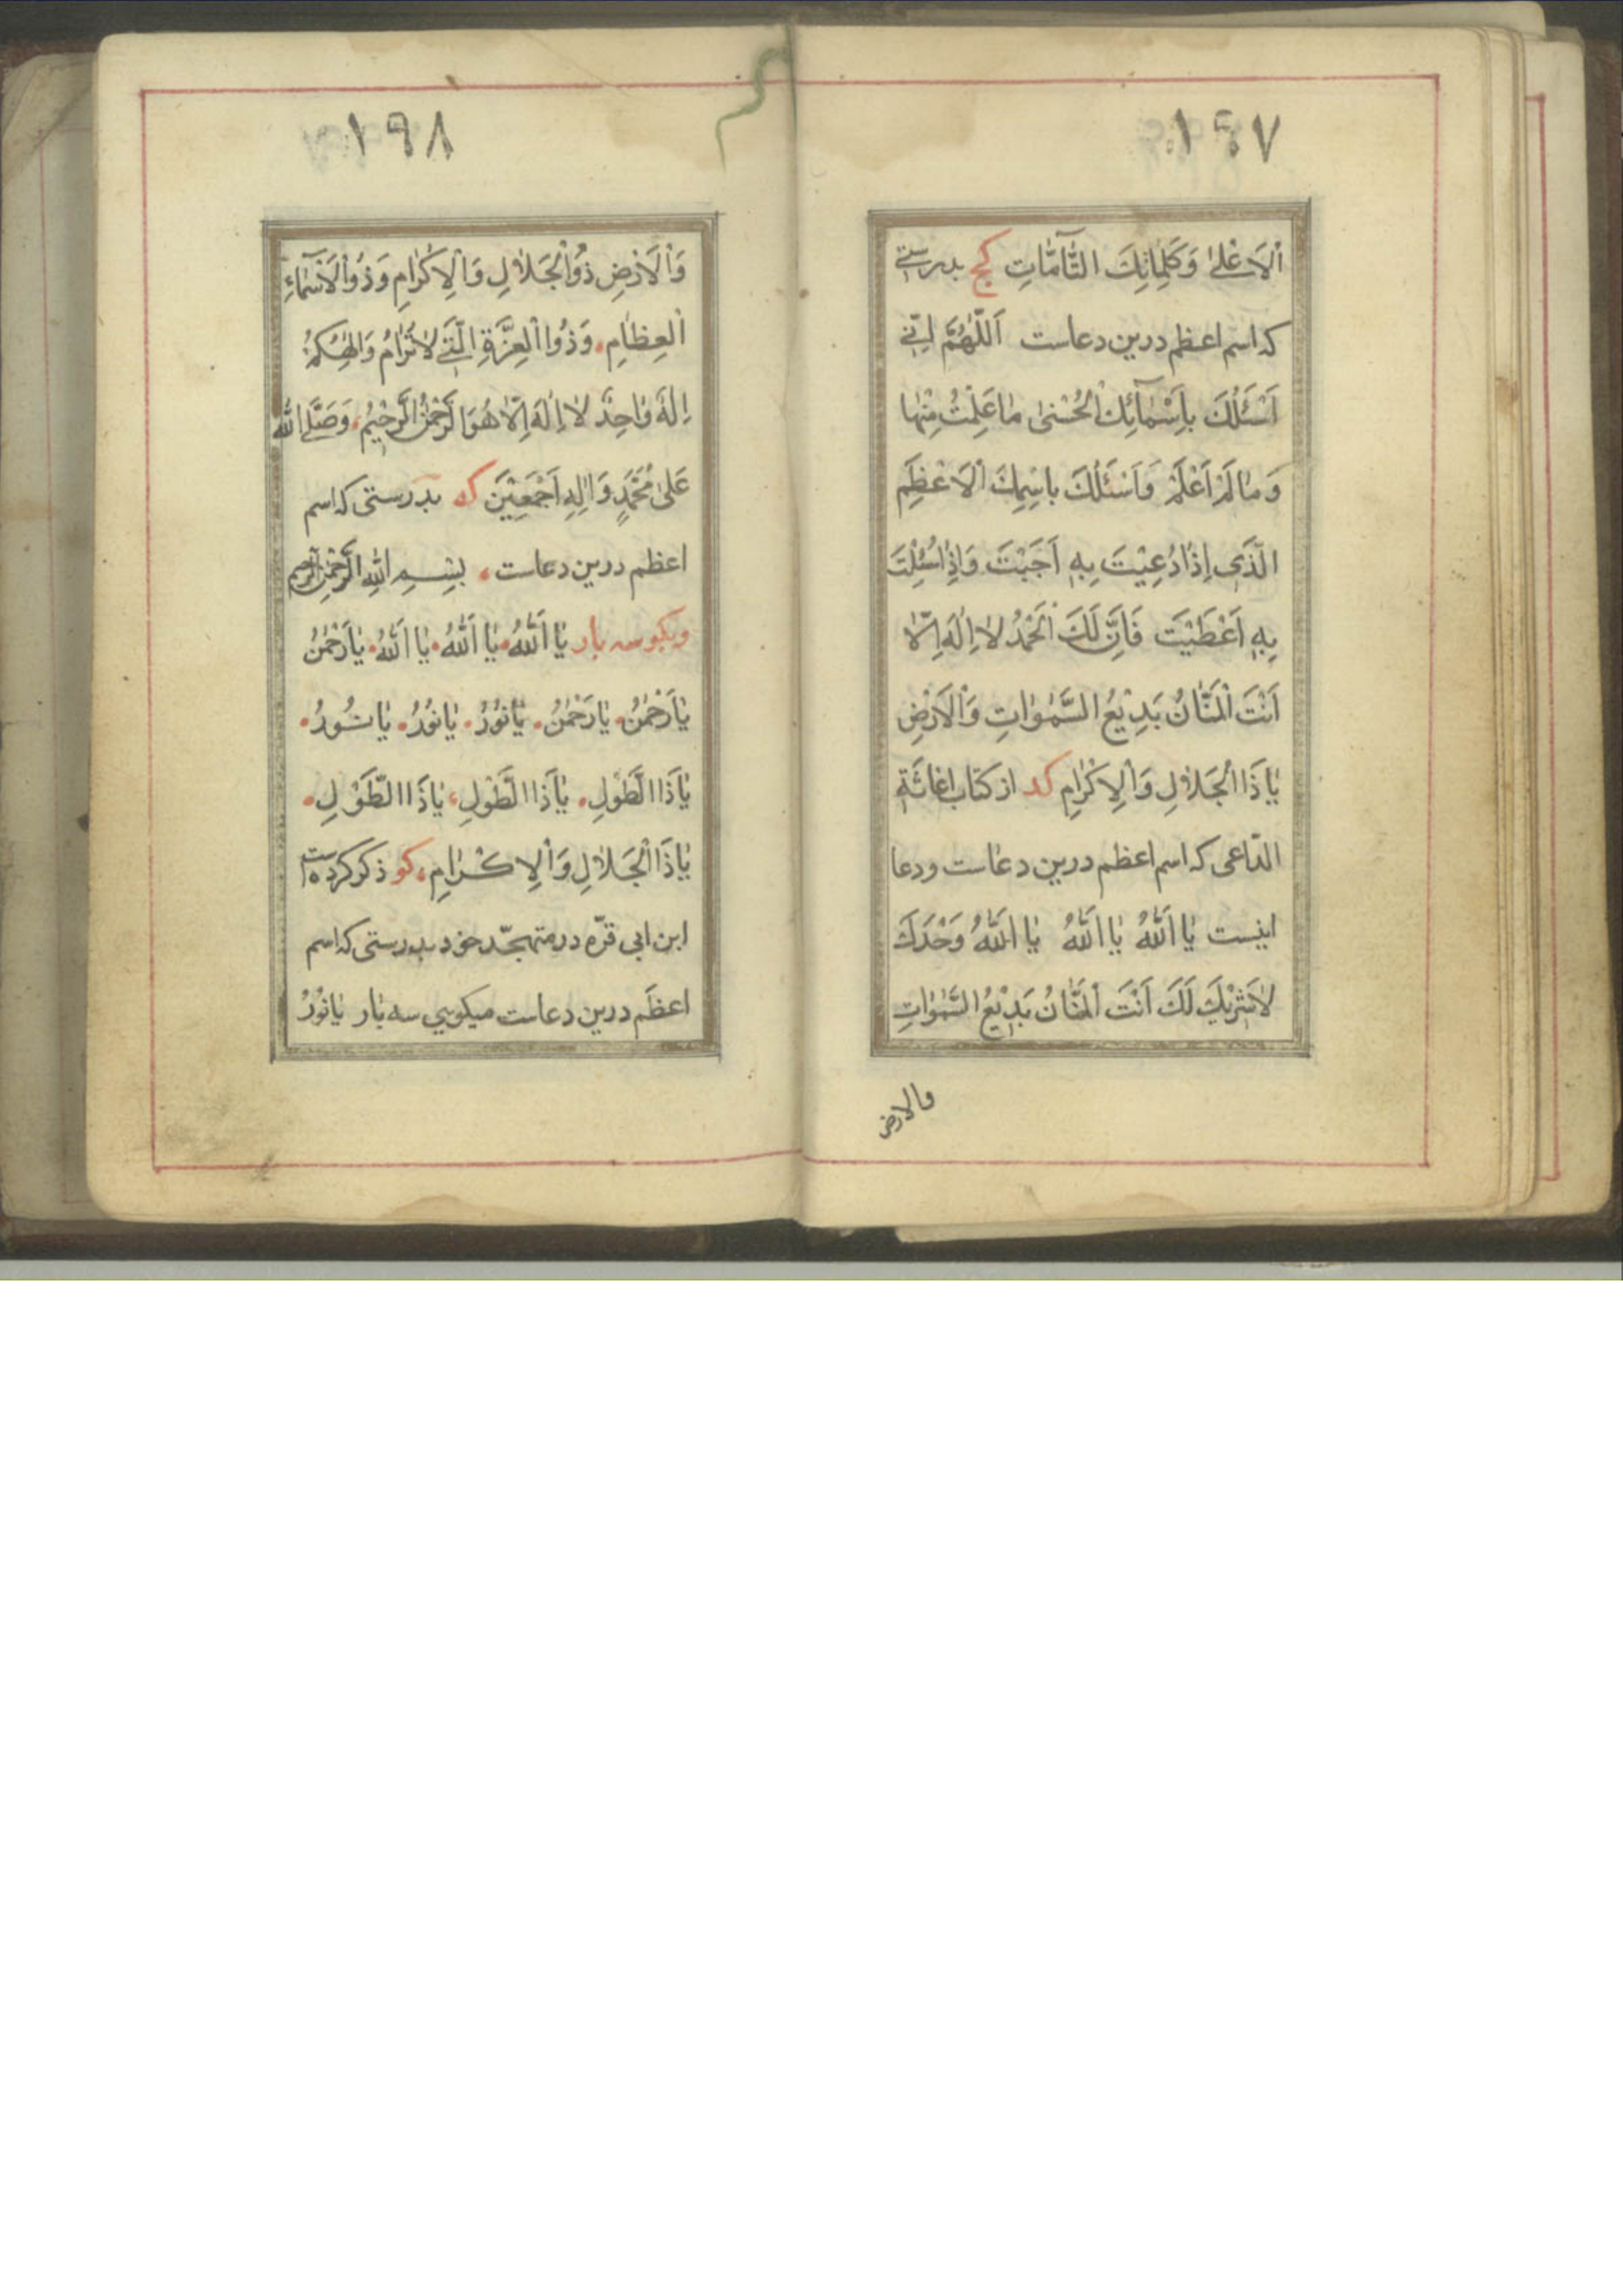 ١٩٧
اَلْاَعْلیٰ وَكَلِمٰاتِكَ التّٰآمّٰاتِ كج بدرستی
كه اسم اعظم درین دعاست اَللّٰهُمَّ اِنّی
اَسْئَلُكَ بِاَسْمٰآئِكَ الْحُسْنیٰ مٰا عَلِمْتُ مِنْهٰا
وَ مٰا لَمْ اَعْلَمْ وَ اَسْئَلُكَ بِاسْمِكَ الْاَعْظَمِ
الَّذی اِذٰا دُعِیْتَ بِهِ اَجَبْتَ وَ اِذٰا سُئِلْتَ
بِهِ اَعْطَیْتَ فَاِنَّ لَكَ الْحَمْدُ لٰا اِلٰهَ اِلّٰا
اَنْتَ الْمَنّٰانُ بَدِیْعُ السَّمٰوٰاتِ وَالْاَرْضِ
یٰا ذَا الْجَلٰالِ وَالْاِكْرٰامِ كد از كتاب اغاثة
الدّاعی كه اسم اعظم درین دعاست و دعا
اینست یٰا اَللّٰهُ یٰا اَللّٰهُ یٰا اَللّٰهُ وَحْدَكَ
لٰا شَرِیْكَ لَكَ اَنْتَ الْمَنّٰانُ بَدِیْعُ السَّمٰوٰاتِ
والارض
١٩٨
وَالْاَرْضِ ذُوا الْجَلٰالِ وَالْاِكْرٰامِ وَ ذُوا الْاَسْمٰآءِ
الْعِظٰامِ وَ ذُوا الْعِزَّةِ الَّتی لٰا تُرٰامُ وَ اِلٰهُكُمْ
اِلٰهٌ وٰاحِدٌ لٰا اِلٰهَ اِلّٰا هُوَ الرَّحْمٰنُ الرَّحیْمُ وَ صَلَّی اللّٰهُ
عَلیٰ مُحَمَّدٍ وَ اٰلِهِ اَجْمَعِیْنَ كه بدرستی كه اسم
اعظم درین دعاست بِسْمِ اللّٰهِ الرَّحْمٰنِ الرَّحیم
و بكو سه بار یٰا اَللّٰهُ یٰا اَللّٰهُ یٰا اَللّٰهُ یٰا رَحْمٰنُ
یٰا رَحْمٰنُ یٰا رَحْمٰنُ یٰا نُوْرُ یٰا نُوْرُ یٰا نُورُ
یٰا ذَا الطَّوْلِ یٰا ذَا الطَّوْلِ یٰا ذَا الطَّوْلِ
یٰا ذَا الْجَلٰالِ وَالْاِكْرٰامِ كو ذكر كرده است
ابن ابی قرّه در متهجّد خود بدرستی كه اسم
اعظم درین دعاست میكویی سه بار یٰا نُوْرُ